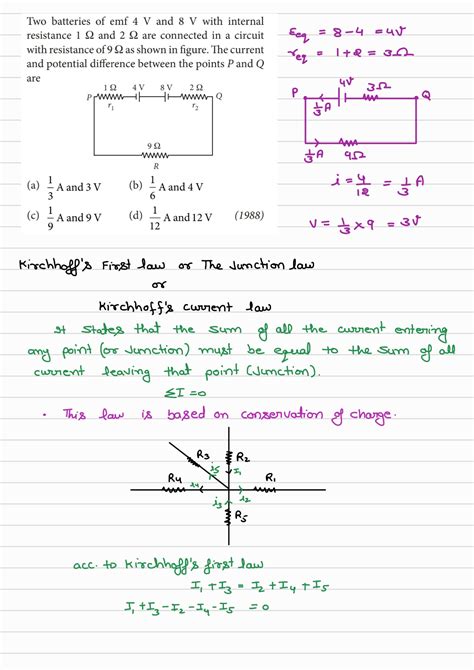 Two batteries of emf 4 V and 8 V with internal
resistance 1 Ω and 2 Ω are connected in a circuit
with resistance of 9 Ω as shown in figure. The current
and potential difference between the points P and Q
are
1 Ω 4 V 8 V 2 Ω
P Q
r₁ r₂
9 Ω
R
(a) 1/3 A and 3 V (b) 1/6 A and 4 V
(c) 1/9 A and 9 V (d) 1/12 A and 12 V (1988)
εeq = 8 - 4 = 4V
req = 1 + 2 = 3Ω
4V 3Ω
P Q
1/3 A
1/3 A 9Ω
i = 4/12 = 1/3 A
V = 1/3 × 9 = 3V
Kirchhoff's First law or The Junction law
or
Kirchhoff's current law
It states that the sum of all the current entering
any point (or Junction) must be equal to the sum of all
current leaving that point (Junction).
ΣI = 0
• This law is based on conservation of charge.
R3 R2
i5 I1
R4 R1
i4 i2
i3
R5
acc. to Kirchhoff's first law
I1 + I3 = I2 + I4 + I5
I1 + I3 - I2 - I4 - I5 = 0